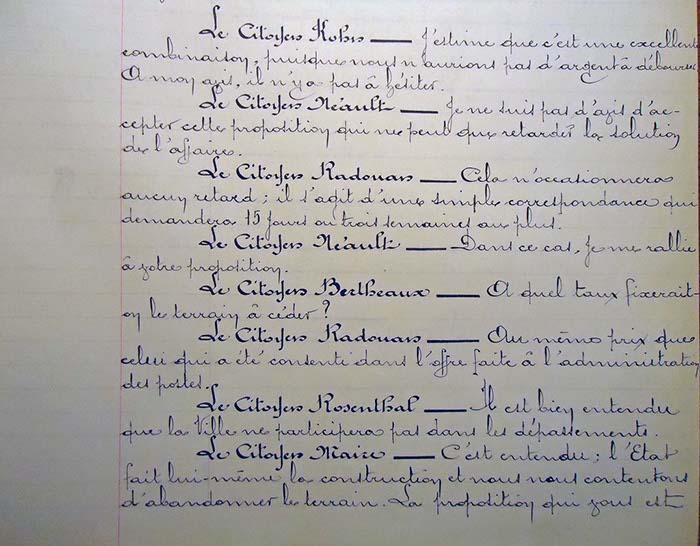 Le Citoyen Kohn — J'estime que c'est une excellente
combinaison, puisque nous n'aurions pas d'argent à débourser.
A mon avis, il n'y a pas à hésiter.
Le Citoyen Néault — Je ne suis pas d'avis d'ac-
cepter cette proposition qui ne peut que retarder la solution
de l'affaire.
Le Citoyen Radouan — Cela n'occasionnera
aucun retard ; il s'agit d'une simple correspondance qui
demandera 15 jours ou trois semaines au plus.
Le Citoyen Néault — Dans ce cas, je me rallie
à votre proposition.
Le Citoyen Bertheaux — A quel taux fixerait-
on le terrain à céder ?
Le Citoyen Radouan — Au même prix que
celui qui a été consenti dans l'offre faite à l'administration
des postes.
Le Citoyen Rosenthal — Il est bien entendu
que la Ville ne participera pas dans les dépassements.
Le Citoyen Maire — C'est entendu ; l'Etat
fait lui-même la construction et nous nous contentons
d'abandonner le terrain. La proposition qui vous est